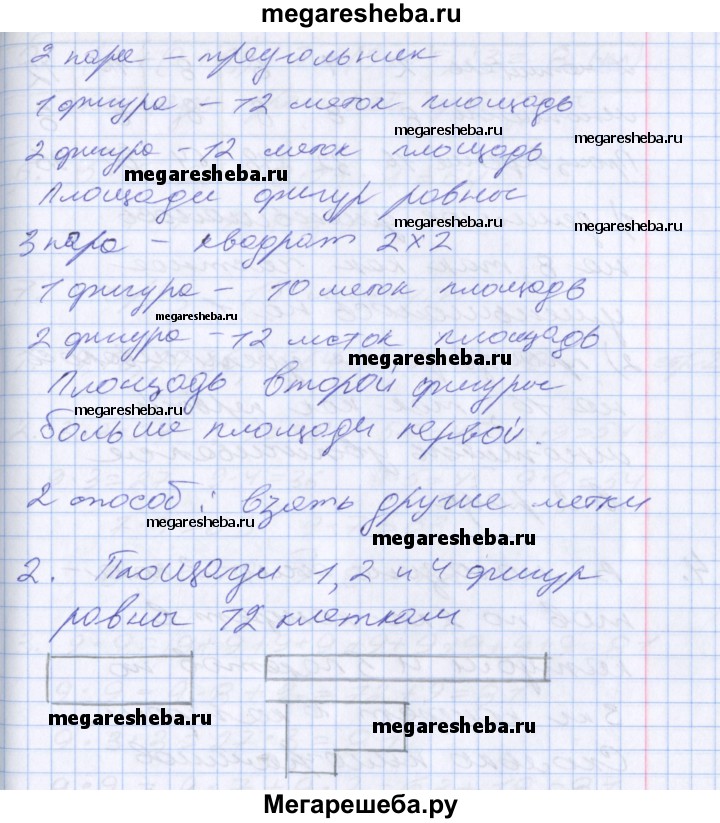 megaresheba.ru
2 пара – треугольник
1 фигура – 12 меток площадь
megaresheba.ru
megaresheba.ru
2 фигура – 12 меток площадь
megaresheba.ru
Площади фигур равны
megaresheba.ru
3 пара – квадрат 2х2
1 фигура – 10 меток площадь
megaresheba.ru
2 фигура – 12 меток площадь
megaresheba.ru
Площадь второй фигуры
megaresheba.ru
больше площади первой.
2 способ: взять другие метки
megaresheba.ru
megaresheba.ru
2. Площади 1, 2 и 4 фигур
равны 12 клеткам
megaresheba.ru
megaresheba.ru
Мегарешеба.ру